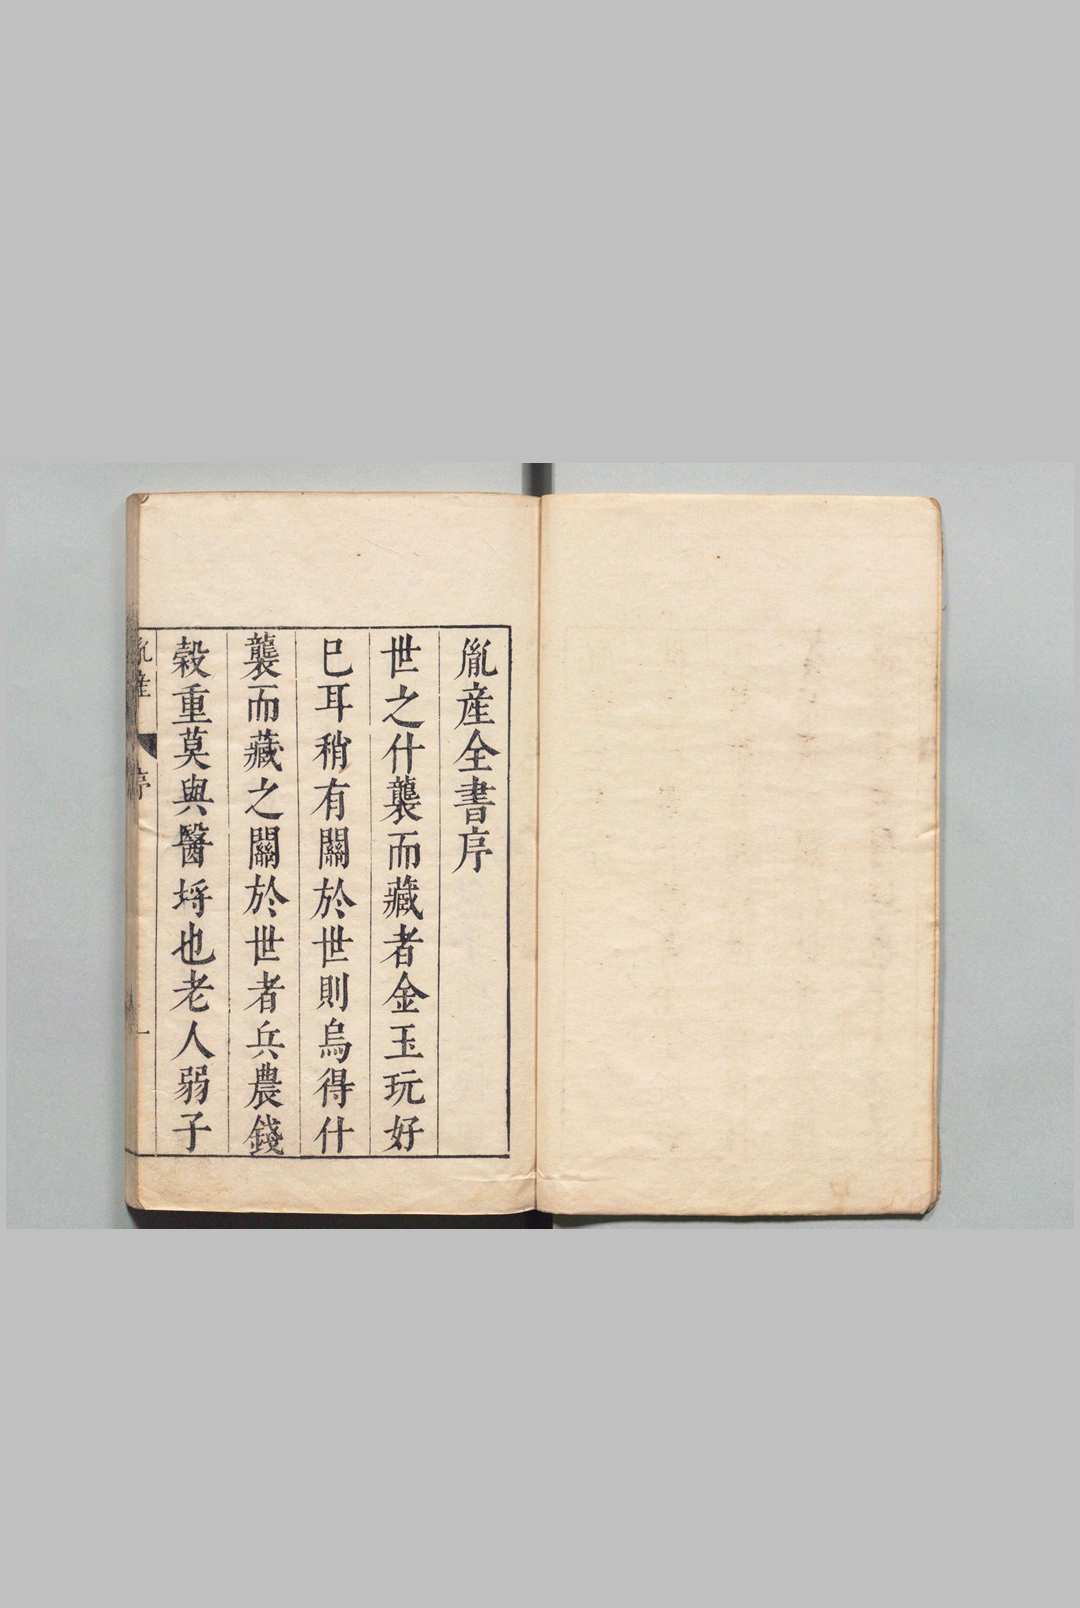 胤産全書序
世之什襲而藏者金玉玩好
巳耳稍有關於世則烏得什
襲而藏之關於世者兵農錢
榖重莫與醫埒也老人弱子
胤産 序 一